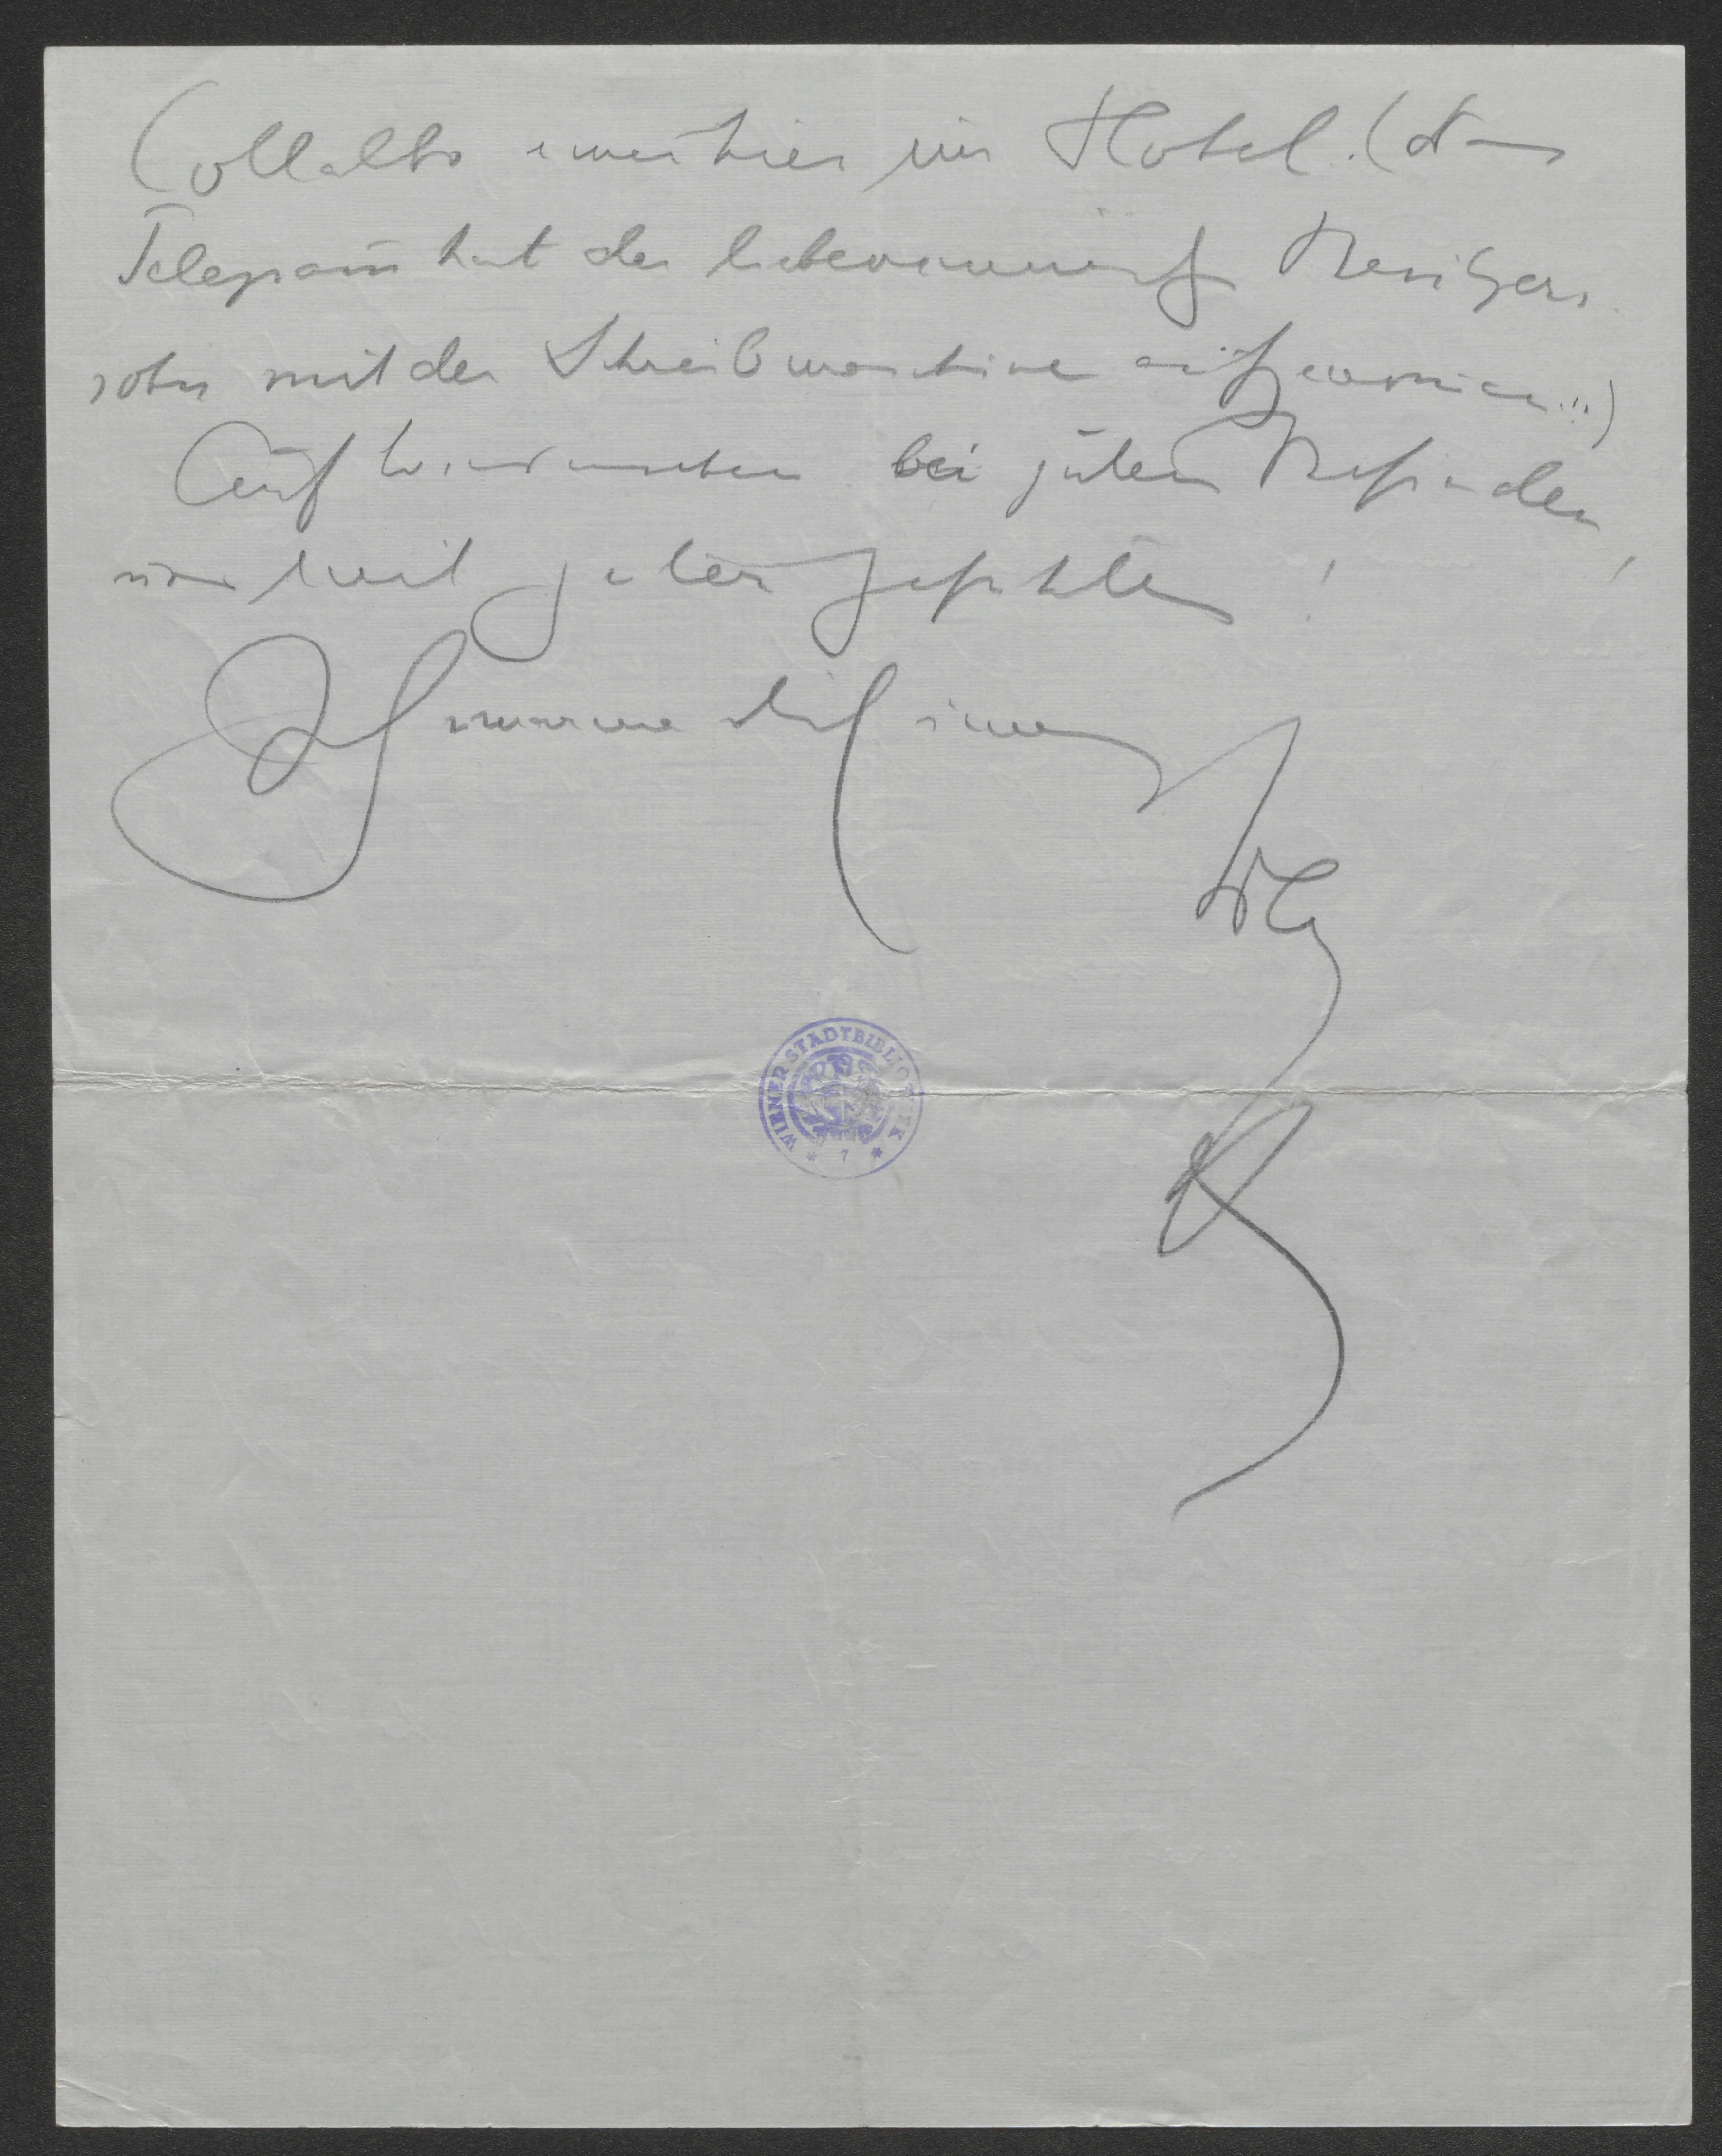 Collalto hier im Hotel. (das
Telegramm hat der liebenswürdige Besitzers-
sohn mit der Schreibmaschine aufgenommen!!!)
Auf Wiedersehen bei gutem Befinden,
und guten Gefühlen!
Ich umarme Dich innig
Dein
K
WIENER STADTBIBLIOTHEK
* 7 *